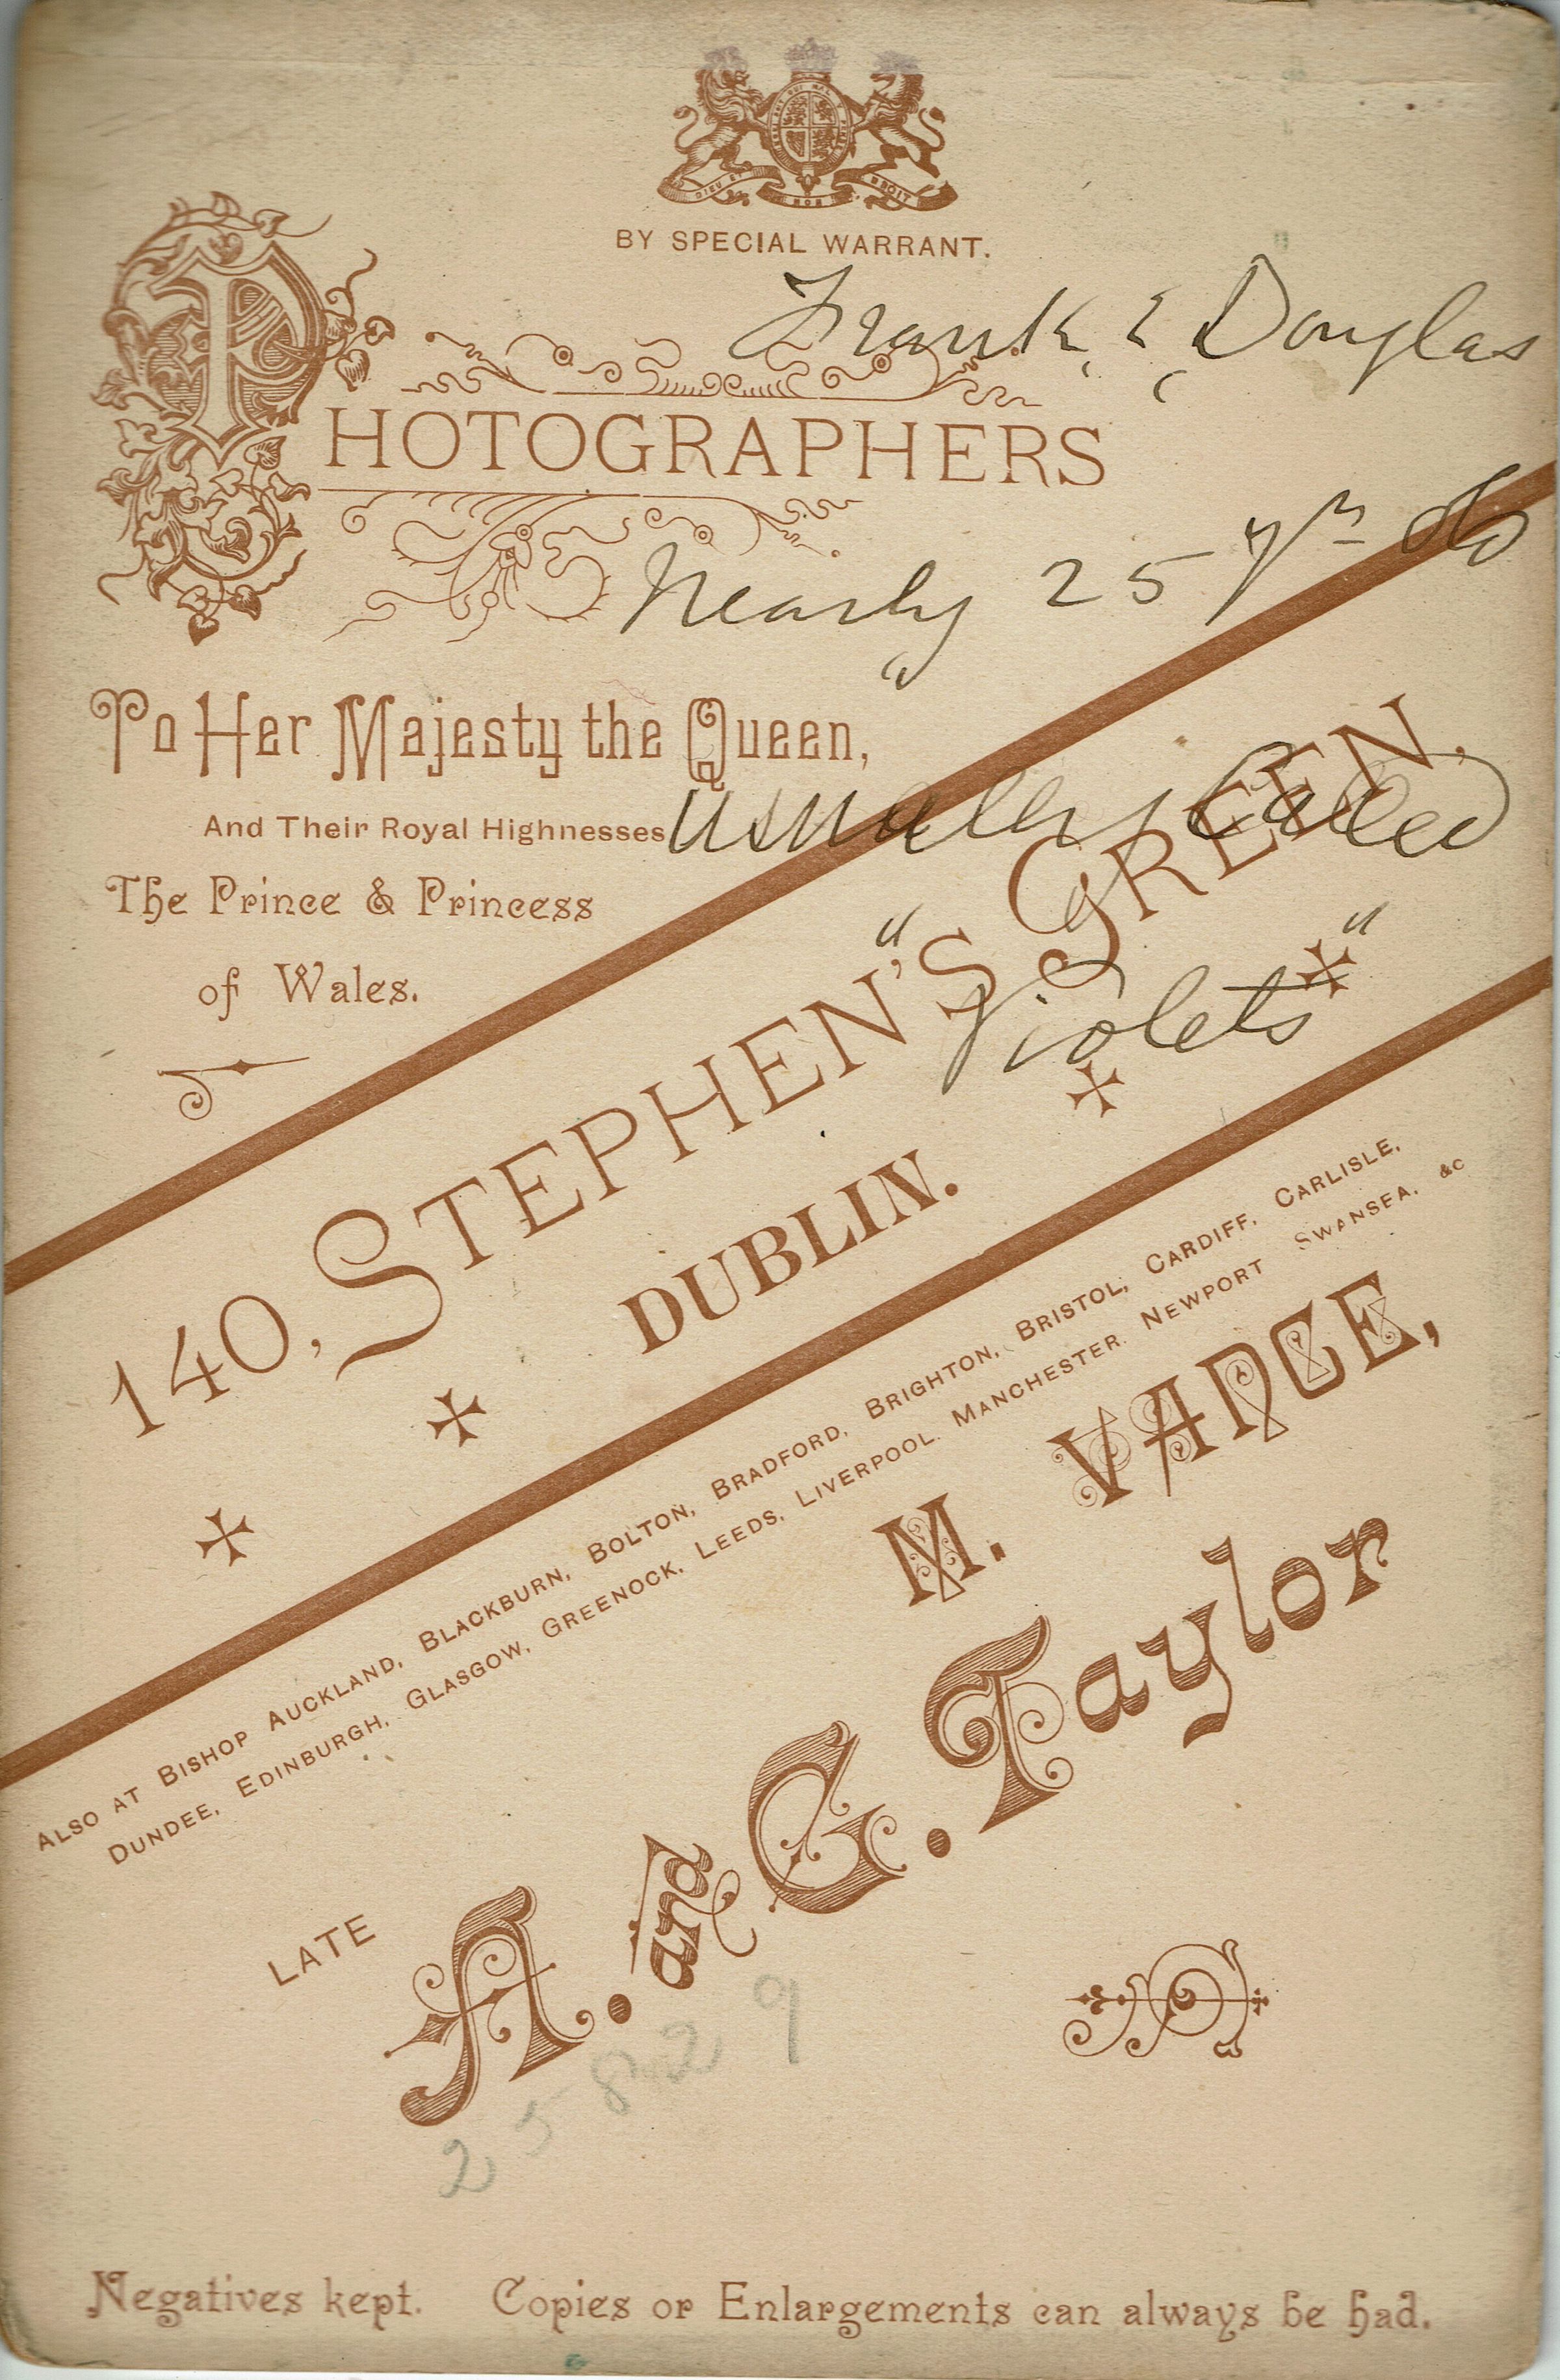 DIEU ET MON DROIT
BY SPECIAL WARRANT.
Frank & Douglas
PHOTOGRAPHERS
Nearly 25 yrs old
To Her Majesty the Queen,
And Their Royal Highnesses
usually Called
The Prince & Princess
of Wales.
"Violets"
140, STEPHEN'S GREEN.
DUBLIN.
ALSO AT BISHOP AUCKLAND, BLACKBURN, BOLTON, BRADFORD, BRIGHTON, BRISTOL, CARDIFF, CARLISLE,
DUNDEE, EDINBURGH, GLASGOW, GREENOCK, LEEDS, LIVERPOOL. MANCHESTER. NEWPORT SWANSEA. &C
M. VANCE,
LATE A. and G. Taylor
25829
Negatives kept. Copies or Enlargements can always be had.